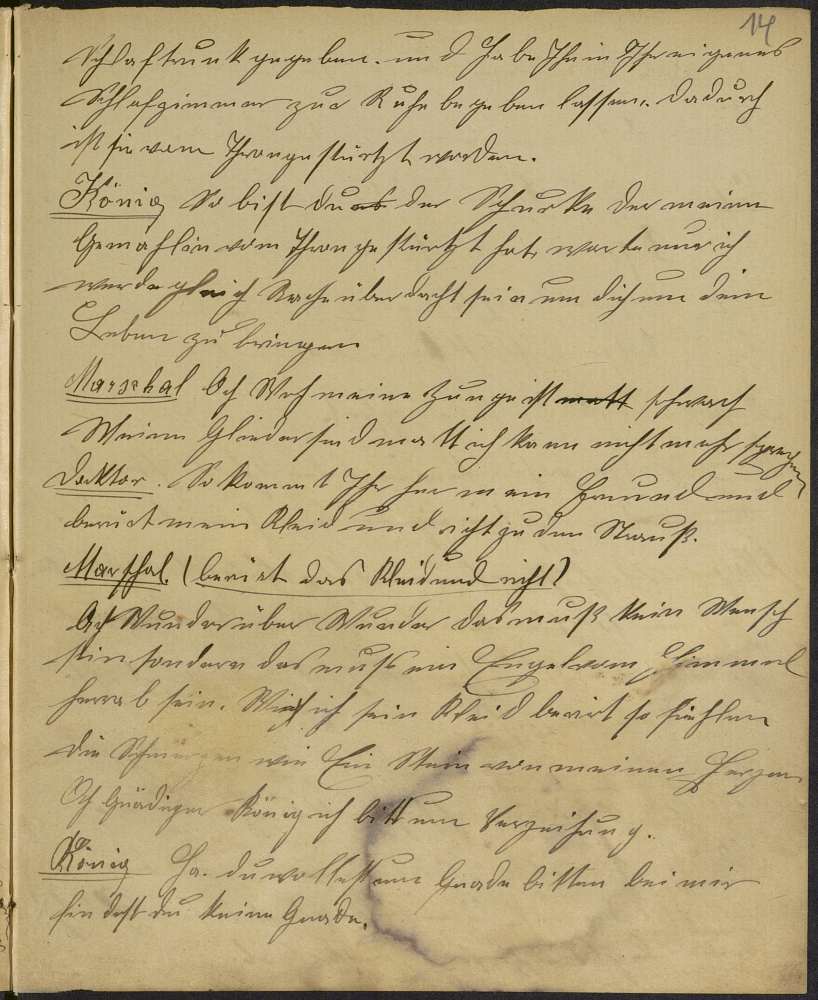 14
Schlaftrunk gegeben. und habe Ihn in Ihr eigenes
Schlafzimmer zur Ruhe begeben lassen. Dadurch
ist sie vom Throngestürtzt worden.
König So bist du der Schurke der meine
Gemahlin vom Throngestürtzt hat warte nur ich
werde gleich Rache über dacht sein um dich um dein
Leben zu bringen
Marschal Ach Weh meine Zunge ist matt schwach
Meine Glieder sind matt ich kann nicht mehr sprechen
Docktor. So kommt Ihr her mein Freund und
berürt mein Kleid und richt zu den Strauß.
Marschal. (berürt das Kleid und richt)
Ach Wunder über Wunder das muß kein Mensch
sein sondern das muß ein Engel vom Himmel
herrab sein. Wie ich sein Kleid berürt so fiehlen
die Schmerzen wie Ein Stein von meinen Herzen
Ach Gnädiger König ich bitt um Verzeihung.
König Ha. du wollest um Gnade bitten bei mir
findest du keine Gnade.